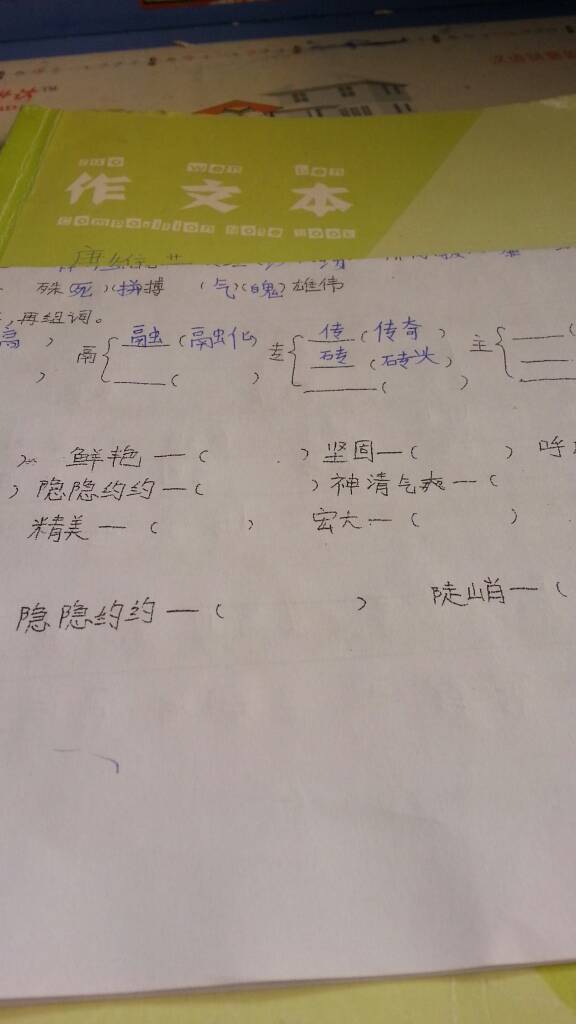 zuo wen ben
作文本
Composition Note Book
殊死)(拼搏 (气)(魄)雄伟
,再组词。
高) 鬲{ 融(融化) 专{ 传(传奇) 主{ ____(
) ____( ) 砖(砖头) ____
____( ) ____
) 鲜艳—( ) 坚固—( ) 呼
) 隐隐约约—( ) 神清气爽—(
精美—( ) 宏大—( )
隐隐约约—( ) 陡峭—(